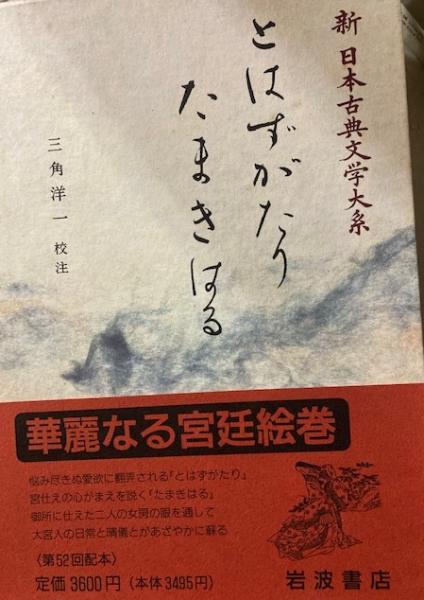 新 日本古典文学大系
とはずがたり
たまきはる
三角洋一 校注
華麗なる宮廷絵巻
悩み尽きぬ愛欲に翻弄される『とはずがたり』
宮仕えの心がまえを説く『たまきはる』
御所に仕えた二人の女房の眼を通して
大宮人の日常と晴儀とがあざやかに蘇る
〈第52回配本〉
定価3600円(本体3495円)
岩波書店